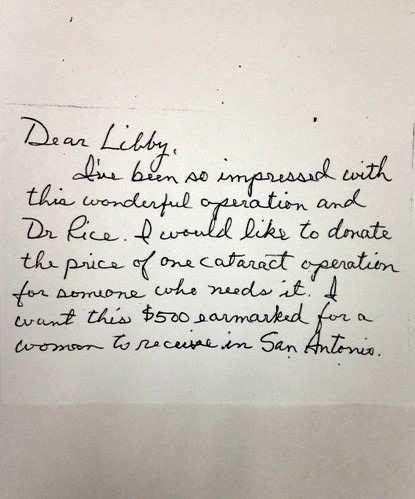 Dear Libby,
I've been so impressed with
this wonderful operation and
Dr Rice. I would like to donate
the price of one cataract operation
for someone who needs it. I
want this $500 earmarked for a
woman to receive in San Antonio.